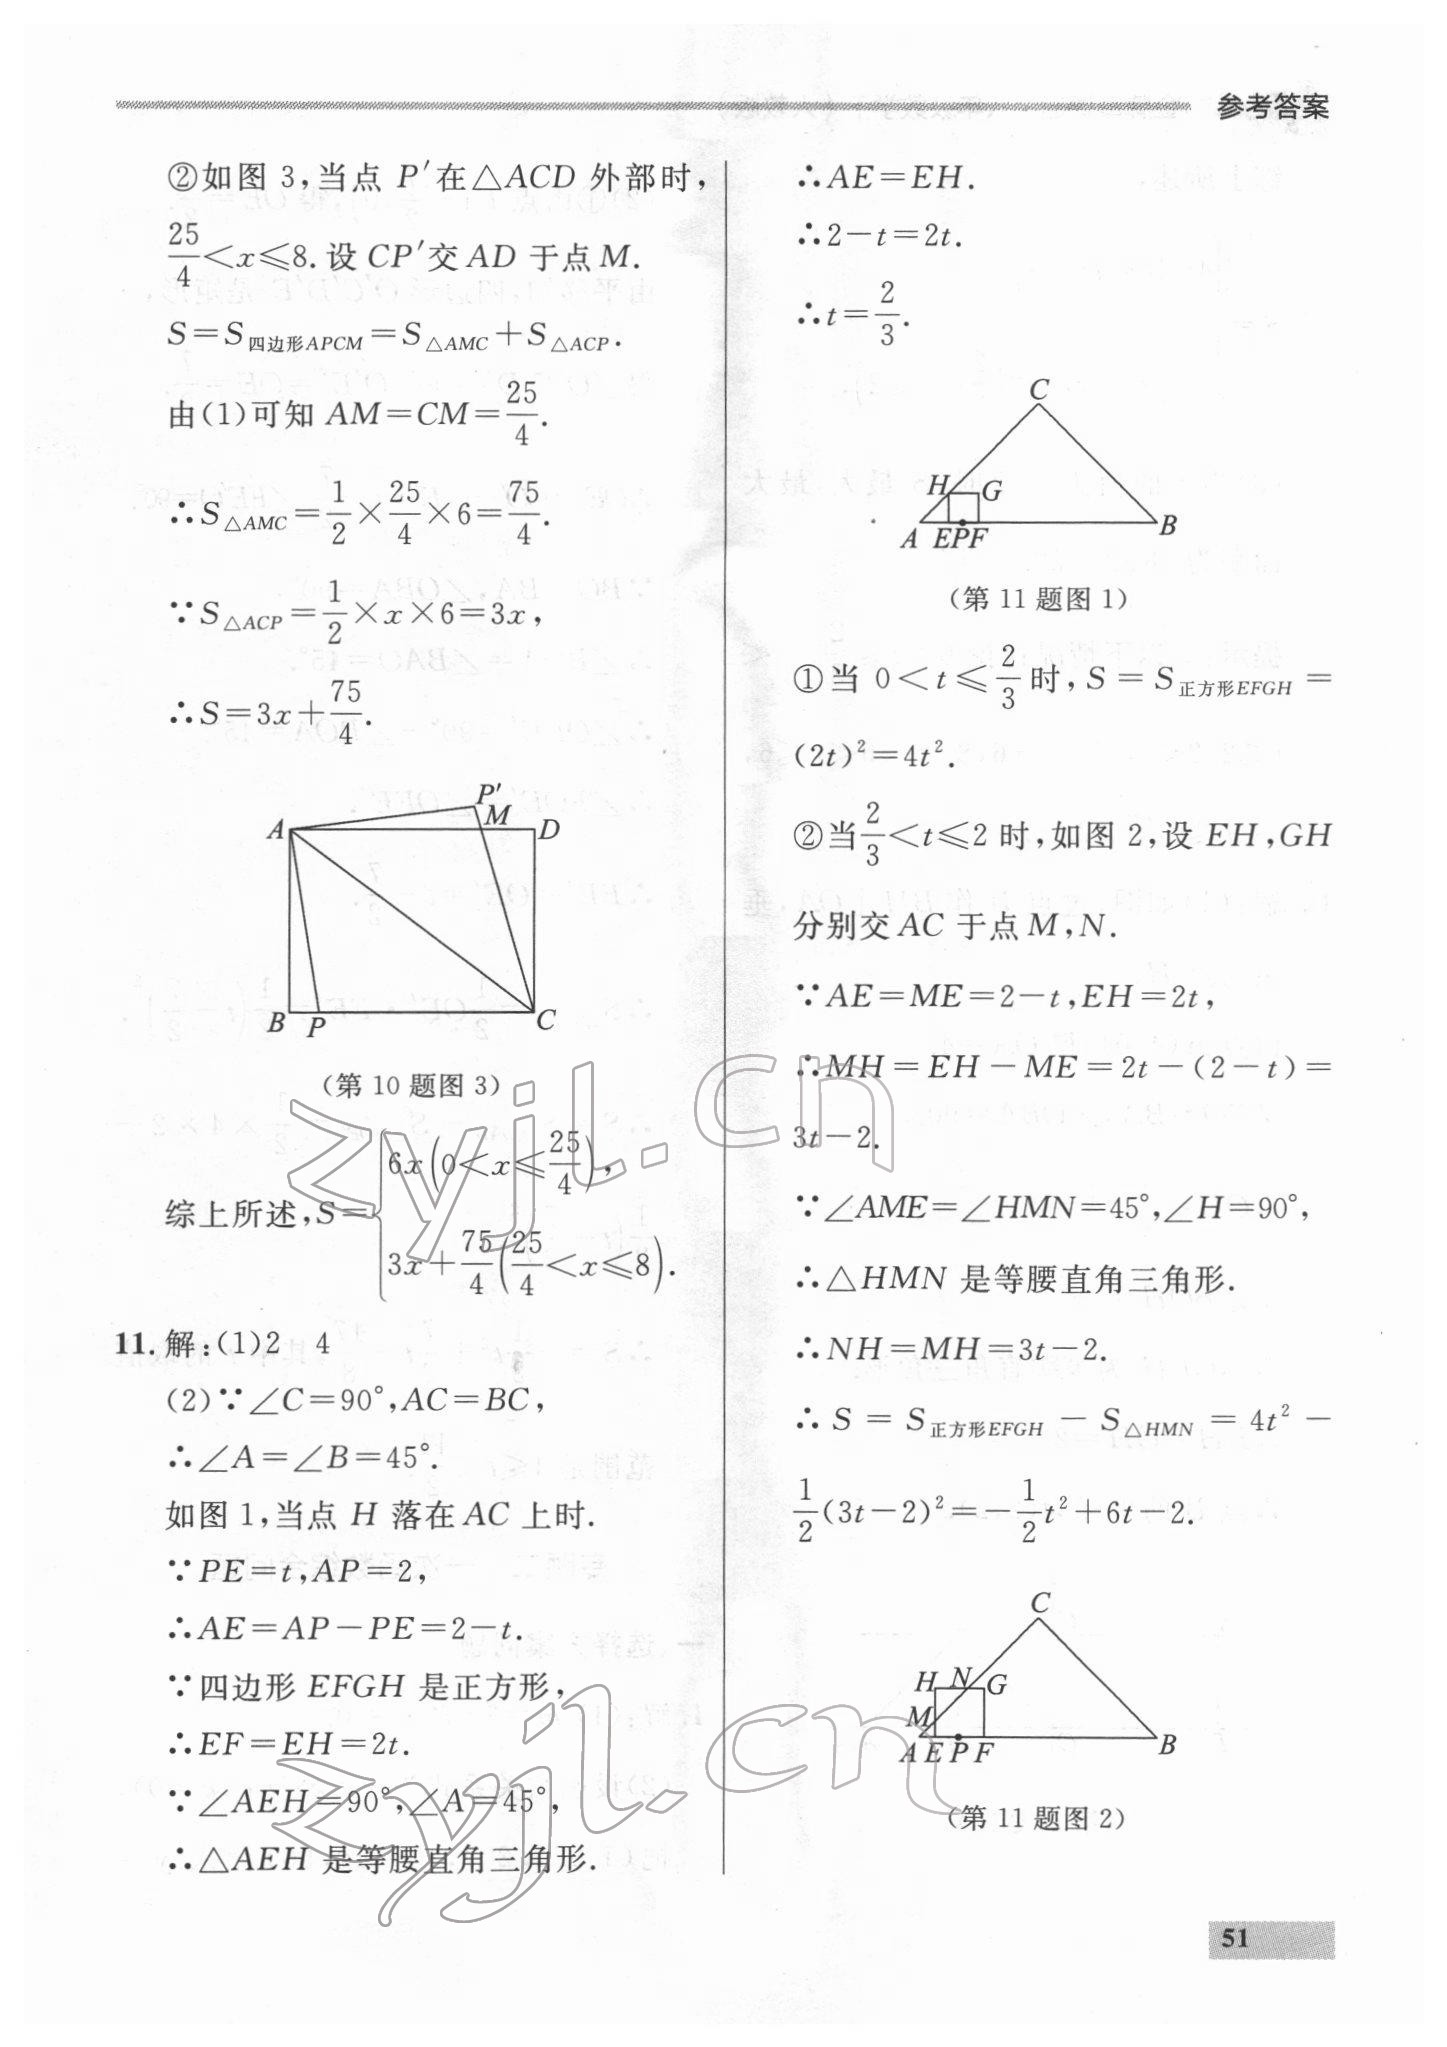 参考答案
②如图 3,当点 P′在△ACD 外部时,
25/4<x≤8.设 CP′交 AD 于点 M.
S=S四边形APCM=S△AMC+S△ACP.
由(1)可知 AM=CM=25/4.
∴S△AMC=1/2×25/4×6=75/4.
∵S△ACP=1/2×x×6=3x,
∴S=3x+75/4.
P′
A M D
B P C
(第 10 题图 3)
综上所述,S={6x(0<x≤25/4),
3x+75/4(25/4<x≤8).
11.解:(1)2 4
(2)∵∠C=90°,AC=BC,
∴∠A=∠B=45°.
如图 1,当点 H 落在 AC 上时.
∵PE=t,AP=2,
∴AE=AP−PE=2−t.
∵四边形 EFGH 是正方形,
∴EF=EH=2t.
∵∠AEH=90°,∠A=45°,
∴△AEH 是等腰直角三角形.
∴AE=EH.
∴2−t=2t.
∴t=2/3.
C
H G
A E P F B
(第 11 题图 1)
①当 0<t≤2/3时,S=S正方形EFGH=
(2t)²=4t².
②当2/3<t≤2 时,如图 2,设 EH,GH
分别交 AC 于点 M,N.
∵AE=ME=2−t,EH=2t,
∴MH=EH−ME=2t−(2−t)=
3t−2.
∵∠AME=∠HMN=45°,∠H=90°,
∴△HMN 是等腰直角三角形.
∴NH=MH=3t−2.
∴S=S正方形EFGH−S△HMN=4t²−
1/2(3t−2)²=−1/2t²+6t−2.
C
H N G
M
A E P F B
(第 11 题图 2)
51
zyjl.cn
zyjl.cn